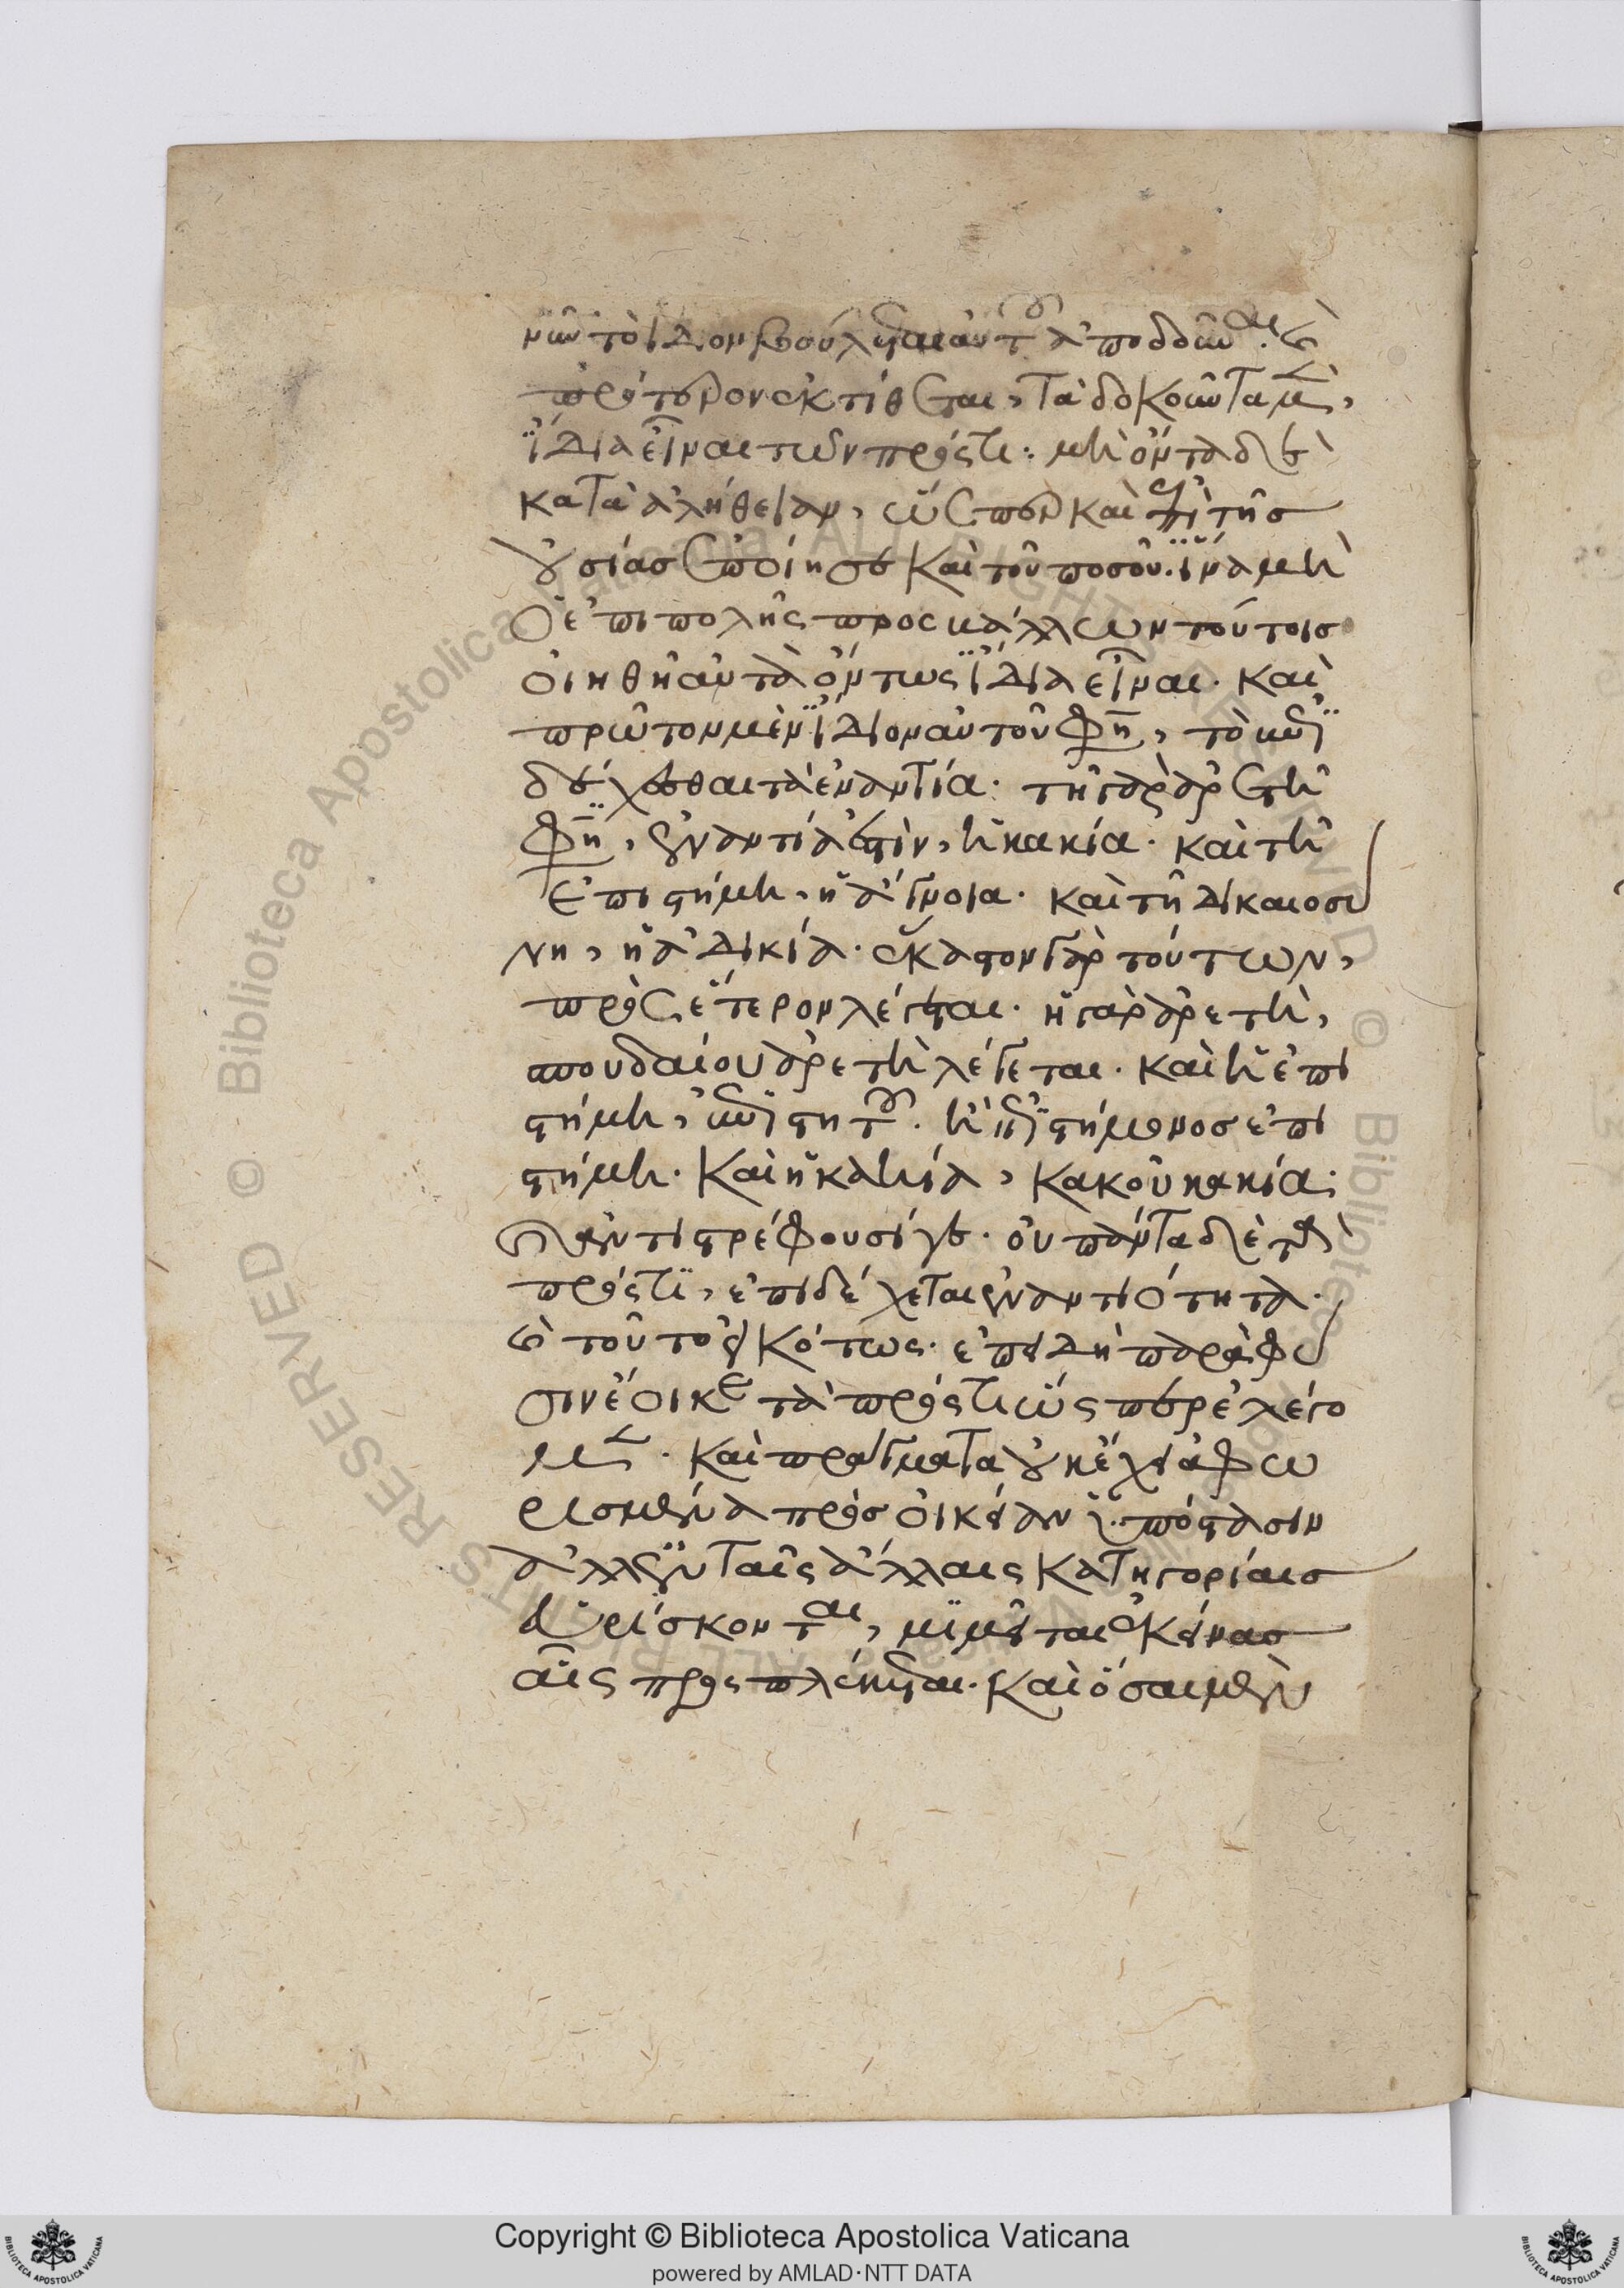 μῶν τὸ ἴδιον βούλεται αὐτοῦ ἀποδοῦναι. καὶ
πρότερον ἐκτίθεται, τὰ δοκοῦντα μὲν,
ἴδια εἶναι τῶν πρός τι· μὴ ὄντα δὲ
κατὰ ἀλήθειαν, ὥσπερ καὶ ἐπὶ τῆς
οὐσίας ἐποίησε καὶ τοῦ ποσοῦ. ἵνα μὴ
ὁ ἐπιπολῆς προσβάλλων τούτοις
οἰηθῆ αὐτὰ ὄντως ἴδια εἶναι. καὶ
πρῶτον μὲν ἴδιον αὐτοῦ φη, τὸ ἐπι
δέχεσθαι τὰ ἐναντία. τῇ γὰρ ἀρετῆ
φη, ἐναντία ἐστὶν, ἡ κακία. καὶ τῆ
ἐπιστήμη, ἡ ἄγνοια. καὶ τῆ δικαιοσύ
νη, ἡ ἀδικία. ἕκαστον γὰρ τούτων,
πρὸς ἕτερον λέγεται. ἡ γὰρ ἀρετὴ,
σπουδαίου ἀρετὴ λέγεται. καὶ ἡ ἐπι
στήμη, ἐπιστητοῦ. ἢ ἐπιστήμονος ἐπι
στήμη. καὶ ἡ κακία, κακοῦ κακία.
ἀντιστρέφουσί γε. οὐ πάντα δὲ τὰ
πρός τι, ἐπιδέχεται ἐναντιότητα.
καὶ τοῦτο εἰκότως. ἐπειδὴ παραφύ
σιν ἔοικε τὰ πρός τι ὥσπερ ἐλέγο
μεν. καὶ πράγματα οὐκ ἔχει ἀφω
ρισμένα πρὸς οἰκείαν ὑπόστασιν
ἀλλ' ἐν ταῖς ἄλλαις κατηγορίαις
εὑρίσκονται, μιμεῖται ἐκείνας
αἷς προσπλέκεται. καὶ ὅσαι μὲν